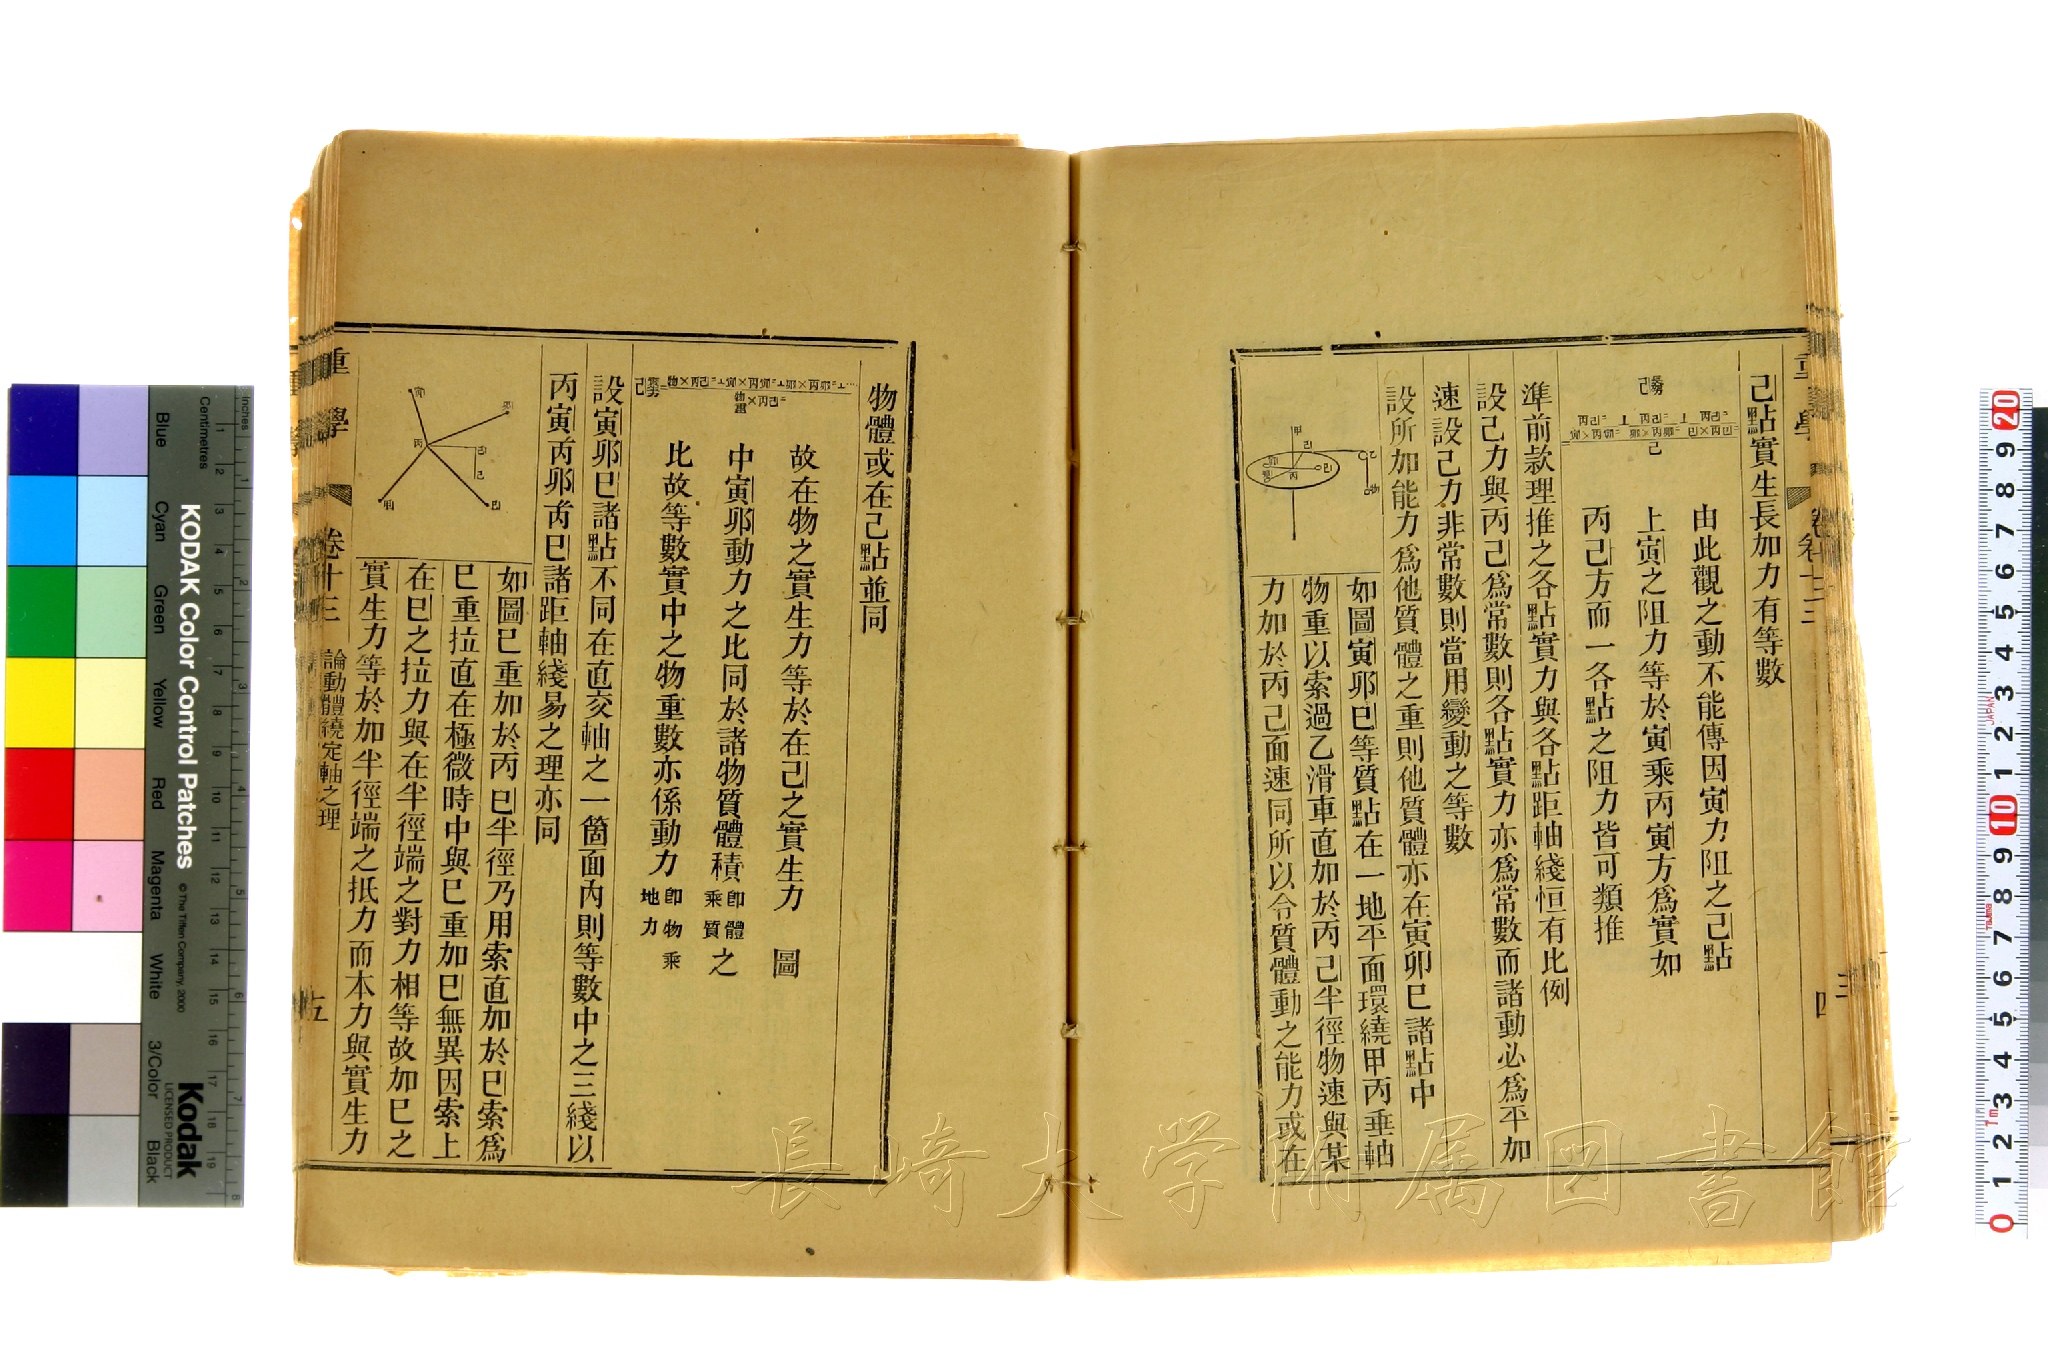 己點實生長加力有等數
由此觀之動不能傳因寅力阻之己點
上寅之阻力等於寅乘丙寅方爲實如
丙己方而一各點之阻力皆可類推
準前款理推之各點實力與各點距軸綫恒有比例
設己力與丙己爲常數則各點實力亦爲常數而諸動必爲平加
速設己力非常數則當用變動之等數
設所加能力爲他質體之重則他質體亦在寅卯巳諸點中
如圖寅卯巳等質點在一地平面環繞甲丙垂軸
物重以索過乙滑車直加於丙己半徑物速與某
力加於丙己面速同所以令質體動之能力或在
物體或在己點並同
故在物之實生力等於在己之實生力 圖
中寅卯動力之比同於諸物質體積即體之乘質之
比故等數實中之物重數亦係動力即物乘地力
設寅卯巳諸點不同在直交軸之一箇面內則等數中之三綫以
丙寅丙卯丙巳諸距軸綫易之理亦同
如圖巳重加於丙巳半徑乃用索直加於巳索爲
巳重拉直在極微時中與巳重加巳無異因索上
在巳之拉力與在半徑端之對力相等故加巳之
實生力等於加半徑端之抵力而本力與實生力
重學
卷十三
論動體繞定軸之理
五
長崎大学附属図書館
KODAK Color Control Patches
© The Tiffen Company, 2000
Kodak
LICENSED PRODUCT
Inches
Centimetres
Blue
Cyan
Green
Yellow
Red
Magenta
White
3/Color
Black
JAPAN